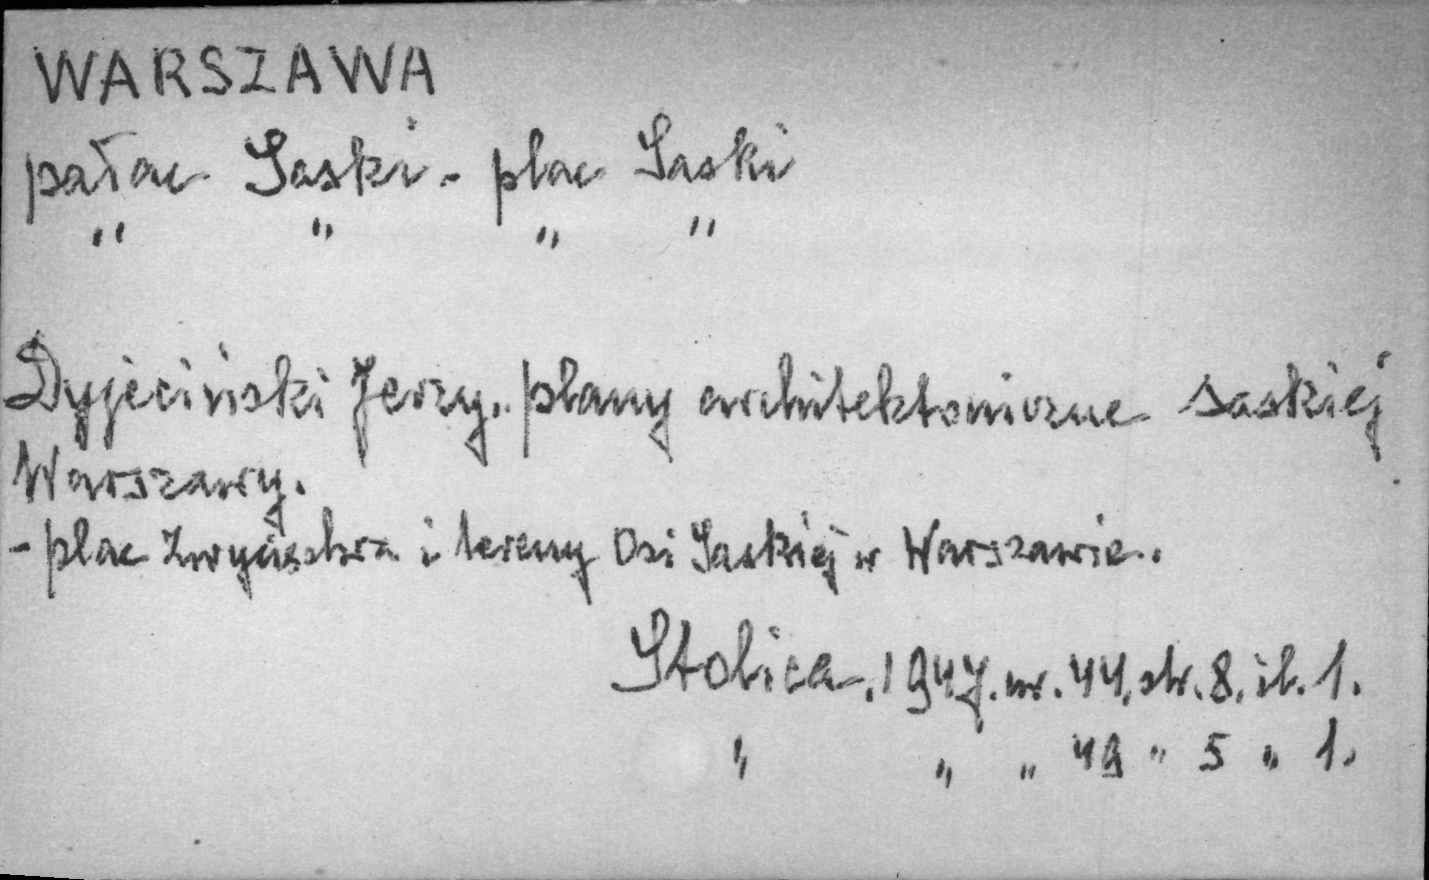 WARSZAWA
pałac Saski - plac Saski
" " " "
Dyjeciński Jerzy. plany architektoniczne saskiej
Warszawy.
- plac Zwycięstwa i tereny Osi Saskiej w Warszawie.
Stolica. 1947. nr. 44. str. 8. il. 1.
" " " 49 " 5 " 1.